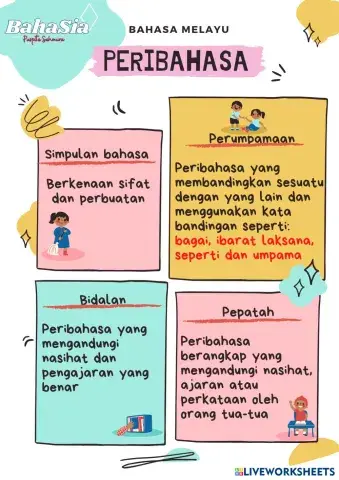 BahaSia
Puspita Sukmara
BAHASA MELAYU
PERIBAHASA
Simpulan bahasa
Berkenaan sifat
dan perbuatan
Perumpamaan
Peribahasa yang
membandingkan sesuatu
dengan yang lain dan
menggunakan kata
bandingan seperti:
bagai, ibarat laksana,
seperti dan umpama
Bidalan
Peribahasa yang
mengandungi
nasihat dan
pengajaran yang
benar
Pepatah
Peribahasa
berangkap yang
mengandungi nasihat,
ajaran atau
perkataan oleh
orang tua-tua
LIVEWORKSHEETS